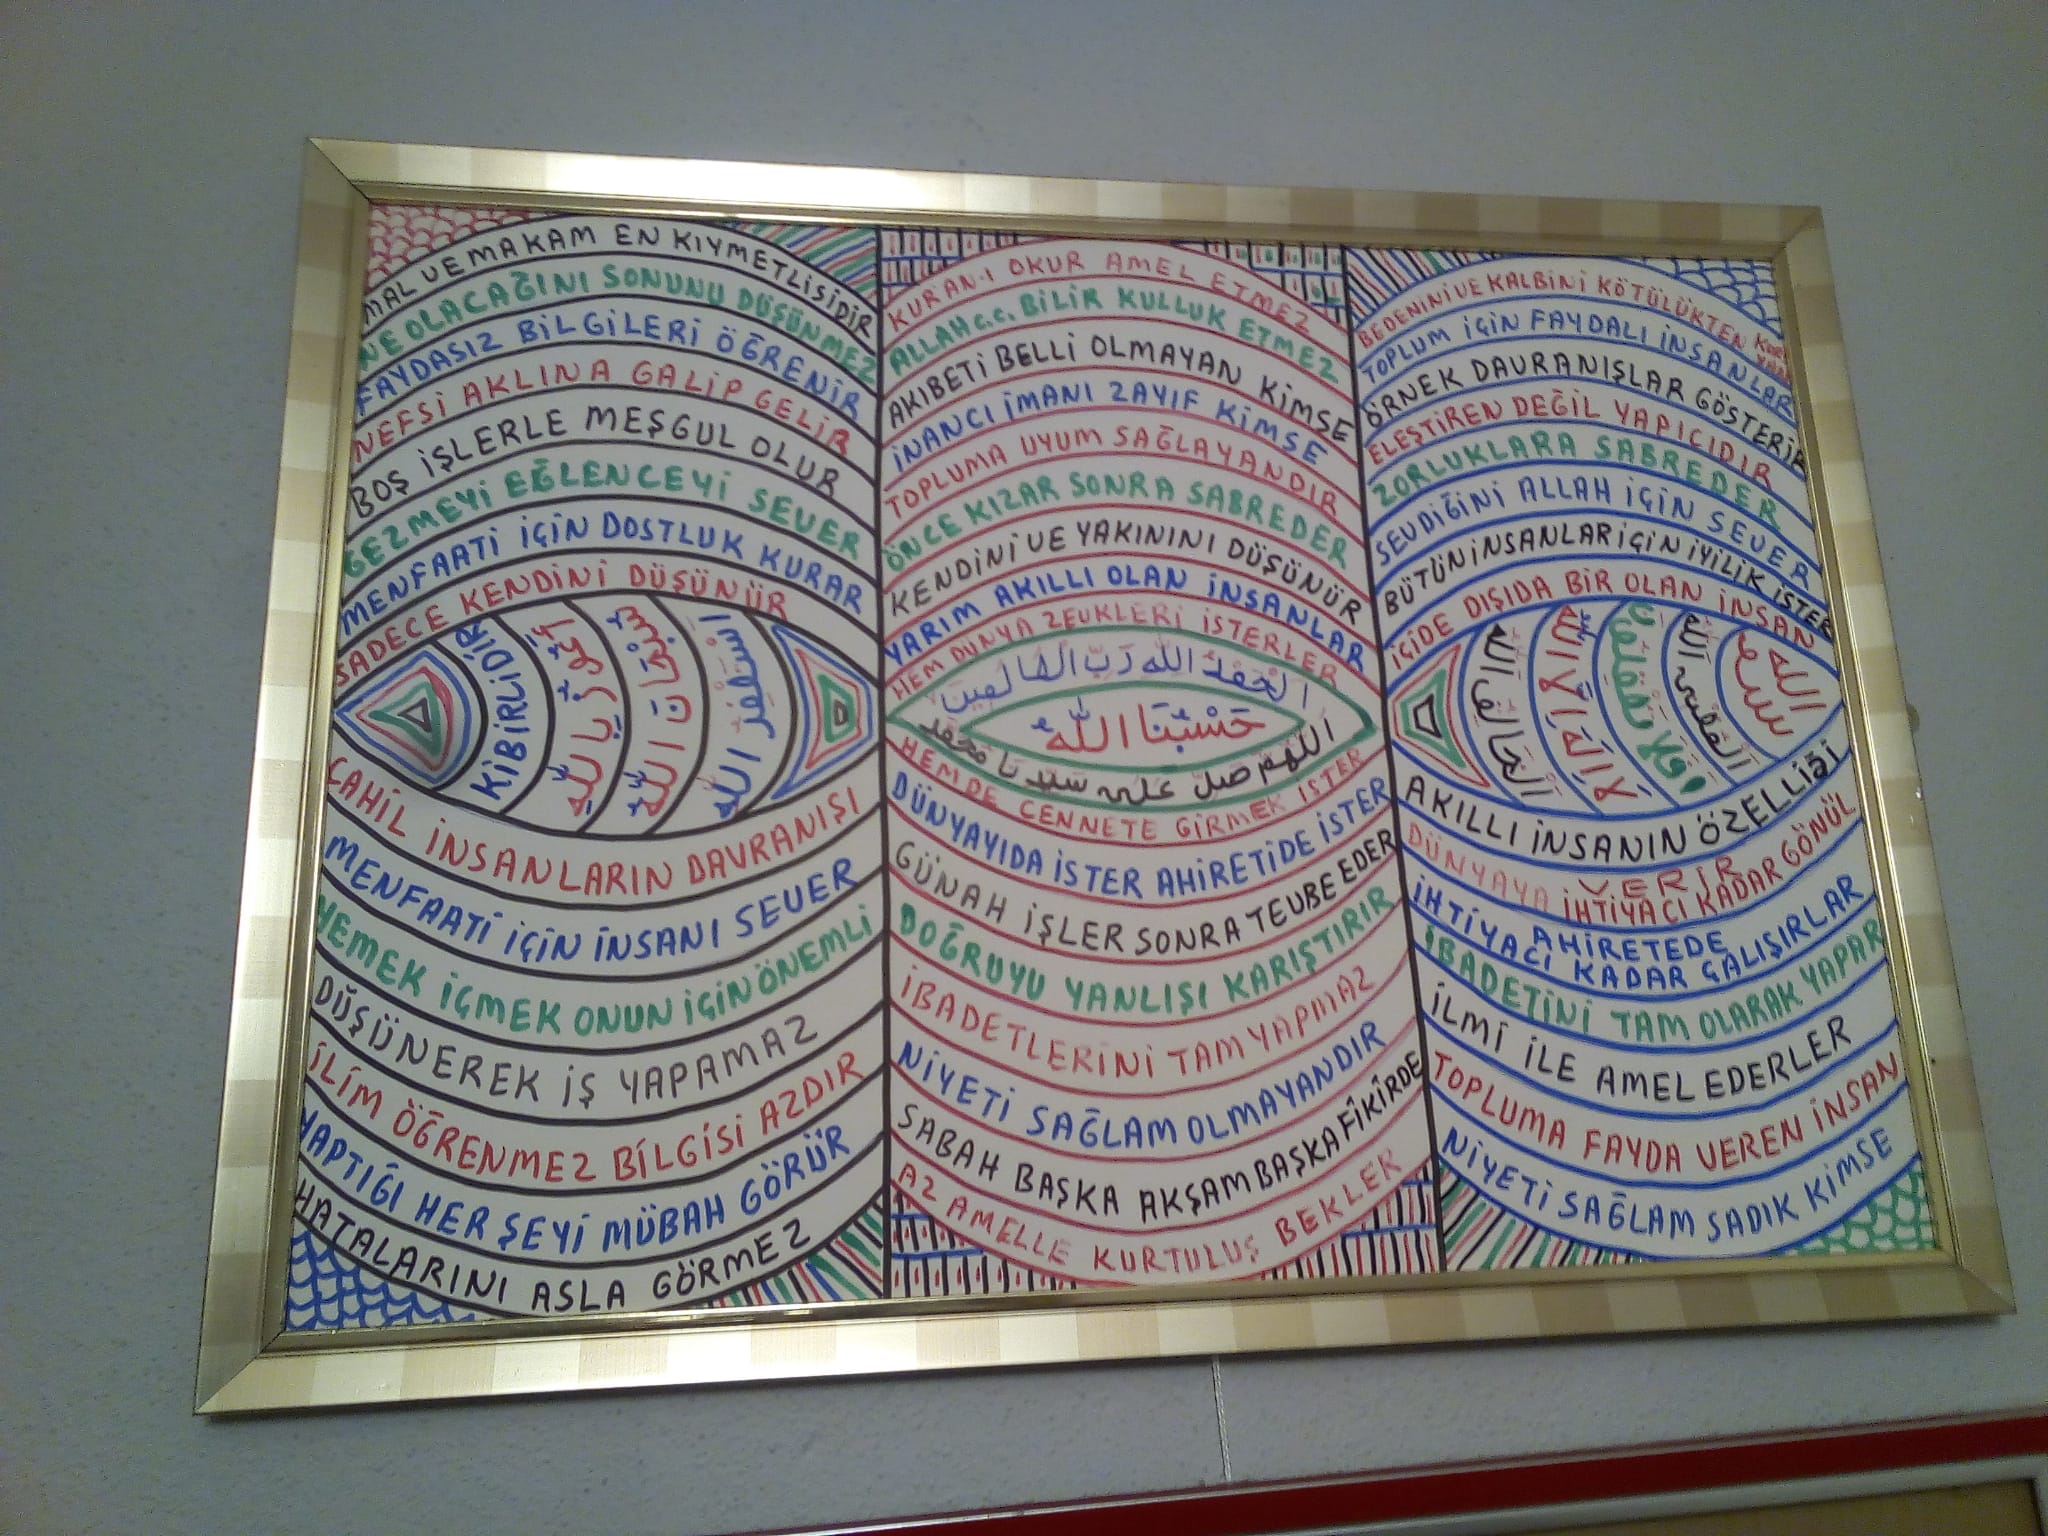 MAL VE MAKAM EN KIYMETLİSİDİR
NE OLACAĞINI SONUNU DÜŞÜNMEZ
FAYDASIZ BİLGİLERİ ÖĞRENİR
NEFSİ AKLINA GALİP GELİR
BOŞ İŞLERLE MEŞGUL OLUR
GEZMEYİ EĞLENCEYİ SEVER
MENFAATİ İÇİN DOSTLUK KURAR
SADECE KENDİNİ DÜŞÜNÜR
KİBİRİLİDİR
CAHİL İNSANLARIN DAVRANIŞI
MENFAATİ İÇİN İNSANI SEVER
YEMEK İÇMEK ONUN İÇİN ÖNEMLİ
DÜŞÜNEREK İŞ YAPAMAZ
İLİM ÖĞRENMEZ BİLGİSİ AZDIR
YAPTIĞI HER ŞEYİ MÜBAH GÖRÜR
HATALARINI ASLA GÖRMEZ
KURAN-I OKUR AMEL ETMEZ
ALLAH C.C. BİLİR KULLUK ETMEZ
AKIBETİ BELLİ OLMAYAN KİMSE
İNANCI İMANI ZAYIF KİMSE
TOPLUMA UYUM SAĞLAYANDIR
ÖNCE KIZAR SONRA SABREDER
KENDİNİ VE YAKININI DÜŞÜNÜR
YARIM AKILLI OLAN İNSANLAR
HEM DÜNYA ZEVKLERİ İSTERLER
الْحَمْدُ اللّٰه رَبِّ الْعَالَمِينَ
حَسْبُنَا اللّٰهُ
اَللّٰهُمَّ صَلِّ عَلَى سَيِّدِنَا مُحَمَّدٍ
HEM DE CENNETE GİRMEK İSTER
DÜNYAYIDA İSTER AHİRETİDE İSTER
GÜNAH İŞLER SONRA TEVBE EDER
DOĞRUYU YANLIŞI KARIŞTIRIR
İBADETLERİNİ TAM YAPMAZ
NİYETİ SAĞLAM OLMAYANDIR
SABAH BAŞKA AKŞAM BAŞKA FİKİRDE
AZ AMELLE KURTULUŞ BEKLER
BEDENİNİ VE KALBİNİ KÖTÜLÜKTEN
TOPLUM İÇİN FAYDALI İNSANLAR
ÖRNEK DAVRANIŞLAR GÖSTERİR
ELEŞTİREN DEĞİL YAPICIDIR
ZORLUKLARA SABREDER
SEVDİĞİNİ ALLAH İÇİN SEVER
BÜTÜN İNSANLAR İÇİN İYİLİK İSTER
İÇİDE DIŞIDA BİR OLAN İNSAN
لَا اِلَهَ اِلَّا اللّٰه
AKILLI İNSANIN ÖZELLİĞİ
DÜNYAYA İHTİYACI KADAR GÖNÜL
VERİR
AHİRETEDE
İHTİYACI KADAR ÇALIŞIRLAR
İBADETİNİ TAM OLARAK YAPAR
İLMİ İLE AMEL EDERLER
TOPLUMA FAYDA VEREN İNSAN
NİYETİ SAĞLAM SADIK KİMSE